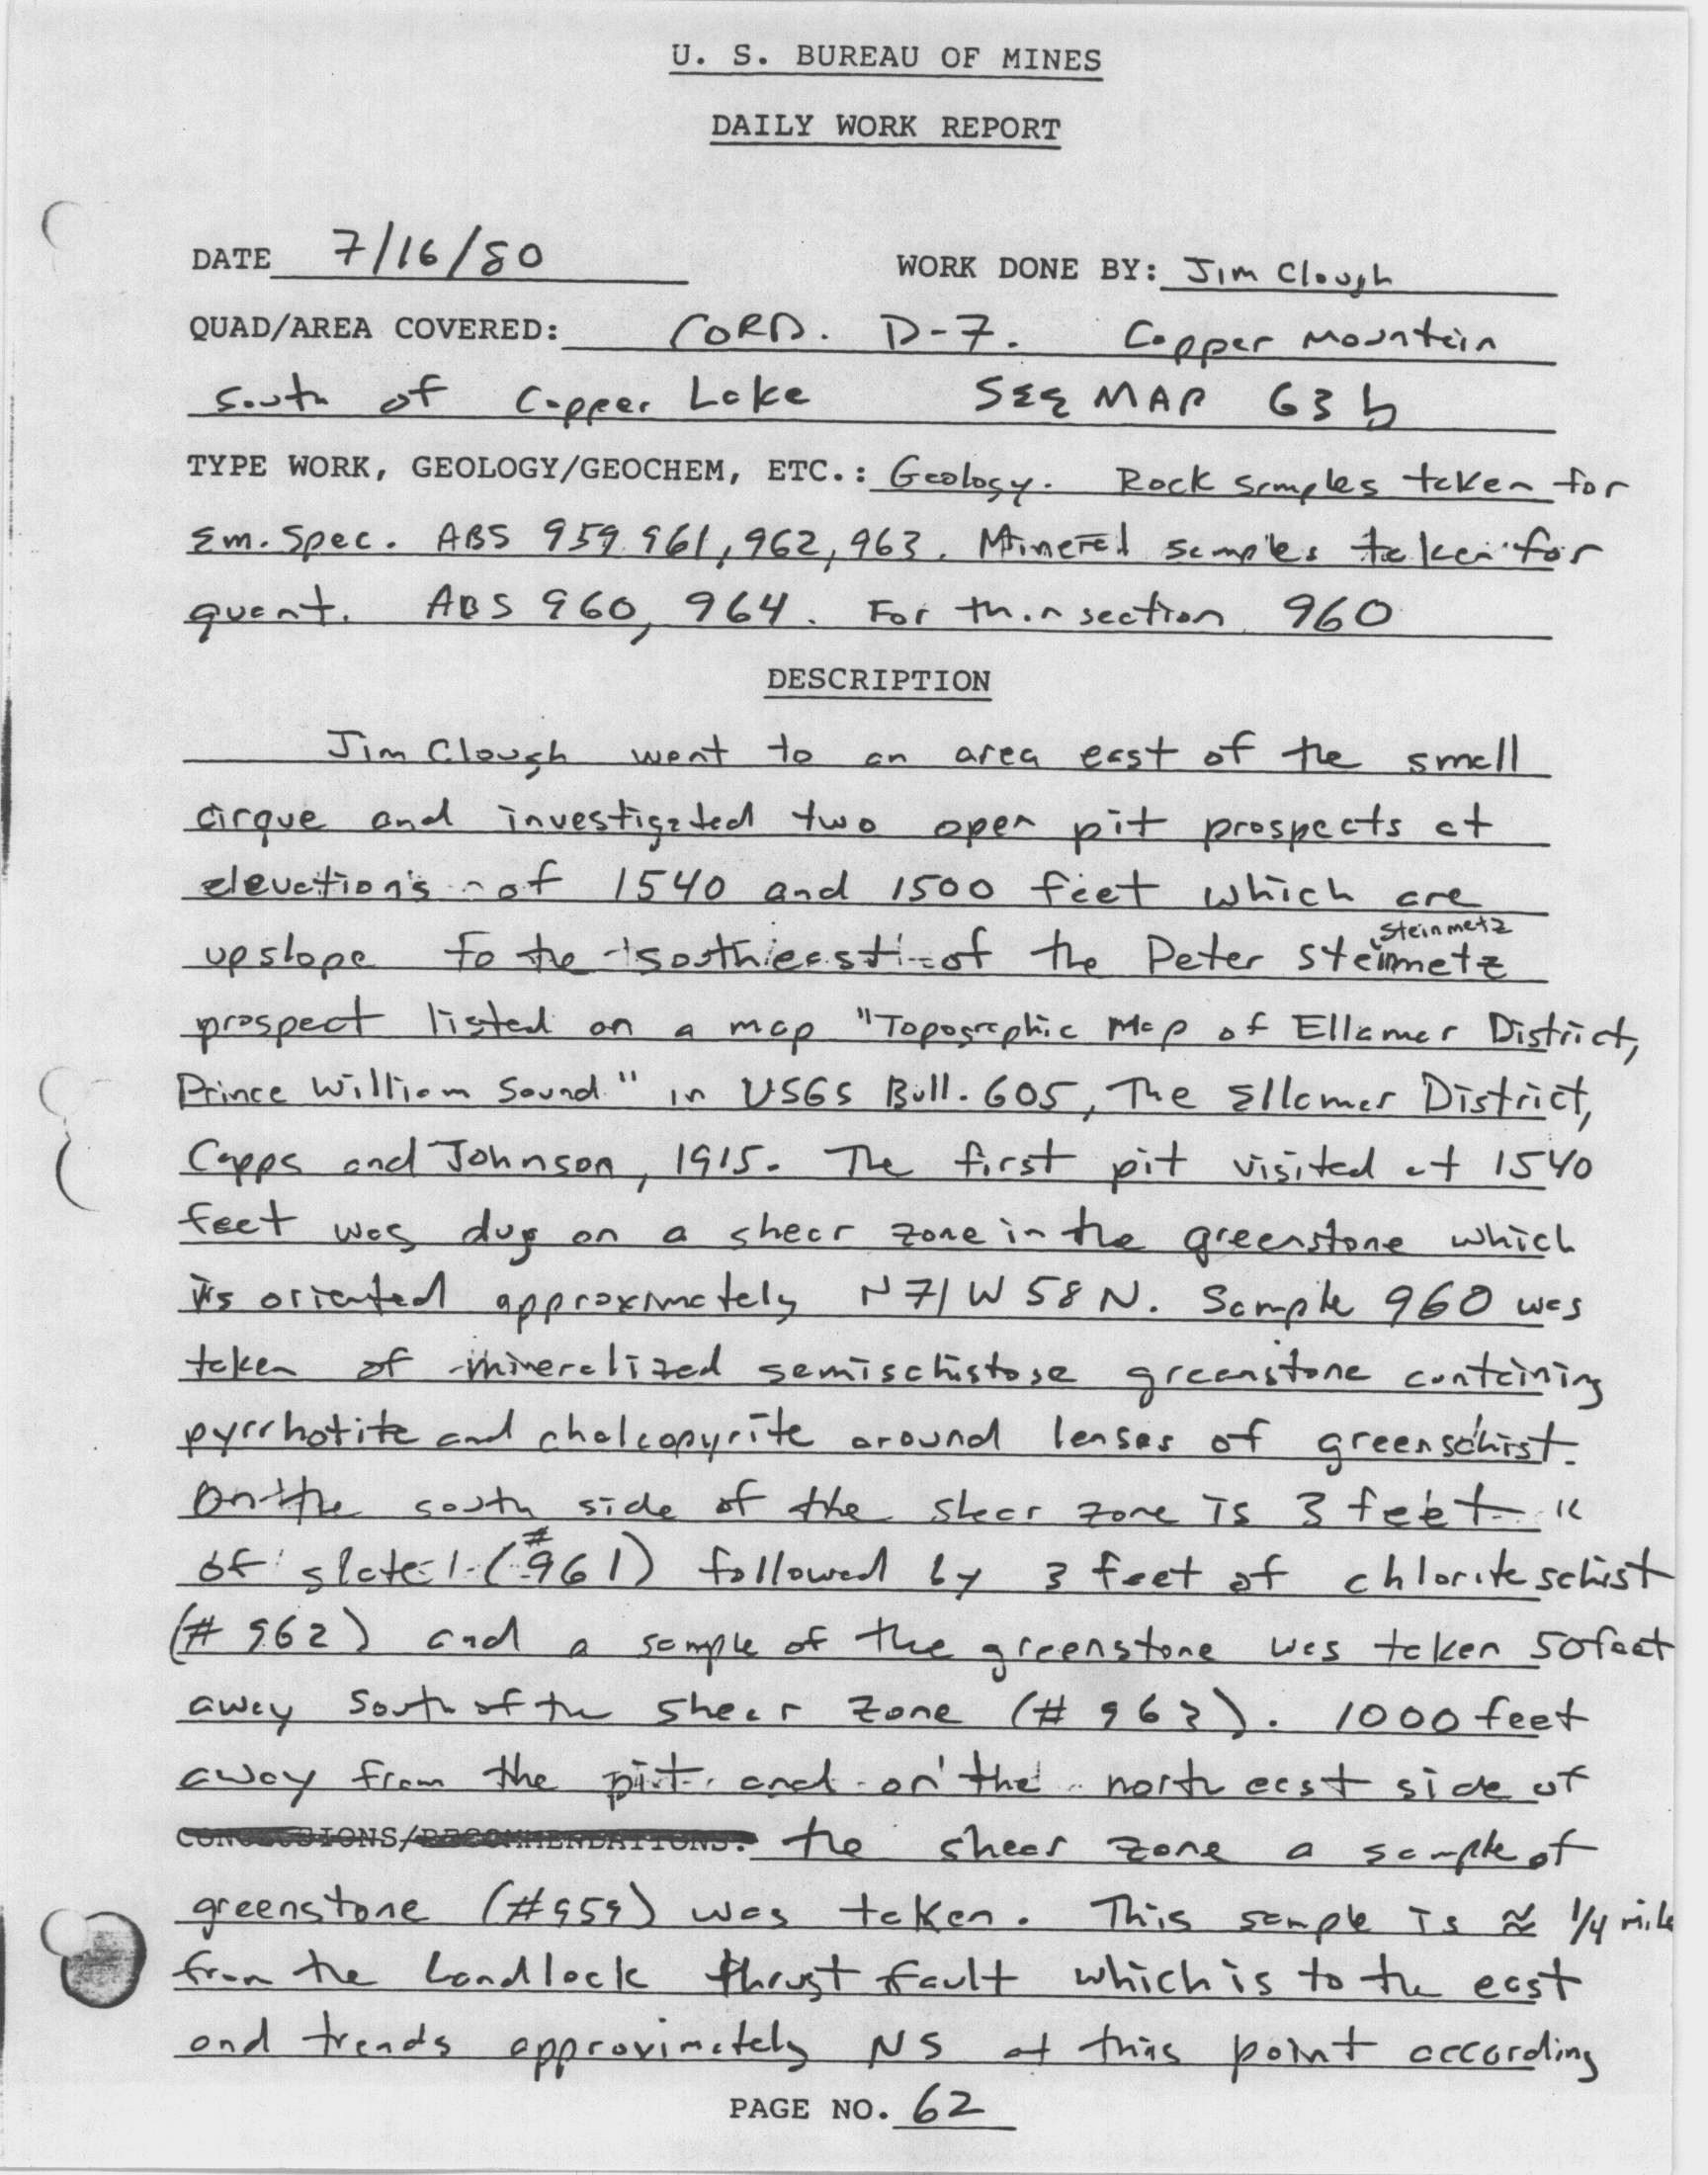 U. S. BUREAU OF MINES
DAILY WORK REPORT
DATE 7/16/80 WORK DONE BY: Jim Clough
QUAD/AREA COVERED: CORD. D-7. Copper Mountain
South of Copper Lake SEE MAP 63b
TYPE WORK, GEOLOGY/GEOCHEM, ETC.: Geology. Rock samples taken for
Em. Spec. ABS 959 961, 962, 963. Mineral samples taken for
quant. ABS 960, 964. For thin section 960
DESCRIPTION
Jim Clough went to an area east of the small
cirque and investigated two open pit prospects at
elevations of 1540 and 1500 feet which are
Steinmetz
upslope to the southeast of the Peter Steinmetz
prospect listed on a map "Topographic Map of Ellamar District,
Prince William Sound" in USGS Bull. 605, The Ellamar District,
Capps and Johnson, 1915. The first pit visited at 1540
feet was dug on a shear zone in the greenstone which
is oriented approximately N71W 58N. Sample 960 was
taken of mineralized semischistose greenstone containing
pyrrhotite and chalcopyrite around lenses of greenschist.
On the south side of the shear zone is 3 feet
of slate (#961) followed by 3 feet of chlorite schist
(# 962) and a sample of the greenstone was taken 50 feet
away south of the shear zone (# 963). 1000 feet
away from the pit and on the north east side of
CONCLUSIONS/RECOMMENDATIONS: the shear zone a sample of
greenstone (#959) was taken. This sample is ≈ 1/4 mile
from the Landlock thrust fault which is to the east
and trends approximately NS at this point according
PAGE NO. 62